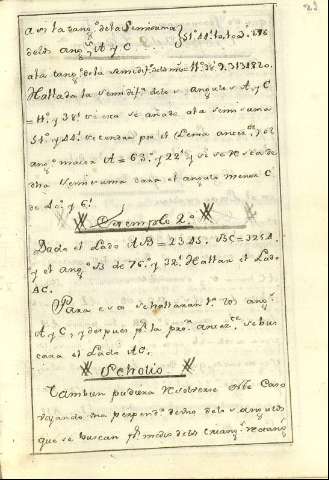 a la tang.^te de la Semisuma
delos ang.^s A y C.
ala tang.^te de la semidif.^a delos mis.^s 11.° 38' 9.3131820.
Hallada la semidif.^a delos angulos A y C
= 11.° y 38' se esta se añade ala semisuma
51.° y 44' se tendra por el Lema anteced.^te, el
ang.° maior A = 63.° y 22' y si se resta de
dha semisuma dara el angulo menor C
de 40.° y 6'.
Exemplo 2.°
Dado el Lado AB = 2345. BC = 3254.
y el ang.° B de 76.° y 32' Hallar el Lado
AC.
Para esto se hallaran 1.° los ang.^s
A y C, y despues p.^r la pro.^n anteced.^te se bus
cara el Lado AC.
Scholio.
Tambien pudiera resolverse este Caso
vajando una perpend.^r desde delos angulos
que se buscan p.^r medio delos triang.^s rectang